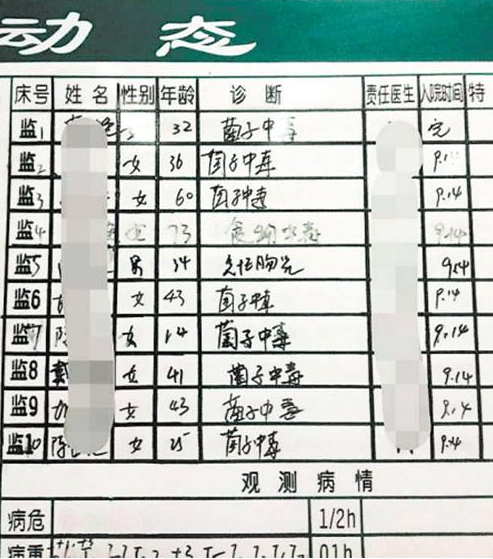 动 态
床号 姓名 性别 年龄 诊断 责任医生 入院时间 特
监1 32 菌子中毒
监2 女 36 菌子中毒 9.14
监3 女 60 菌子中毒 9.14
监4 女 73 食物中毒 9.14
监5 男 34 9.14
监6 女 43 菌子中毒 9.14
监7 陈 女 14 菌子中毒 9.14
监8 女 41 菌子中毒 9.14
监9 女 43 菌子中毒 9.14
监10 陈 女 25 菌子中毒 9.14
观测病情
病危 1/2h
病重 01h